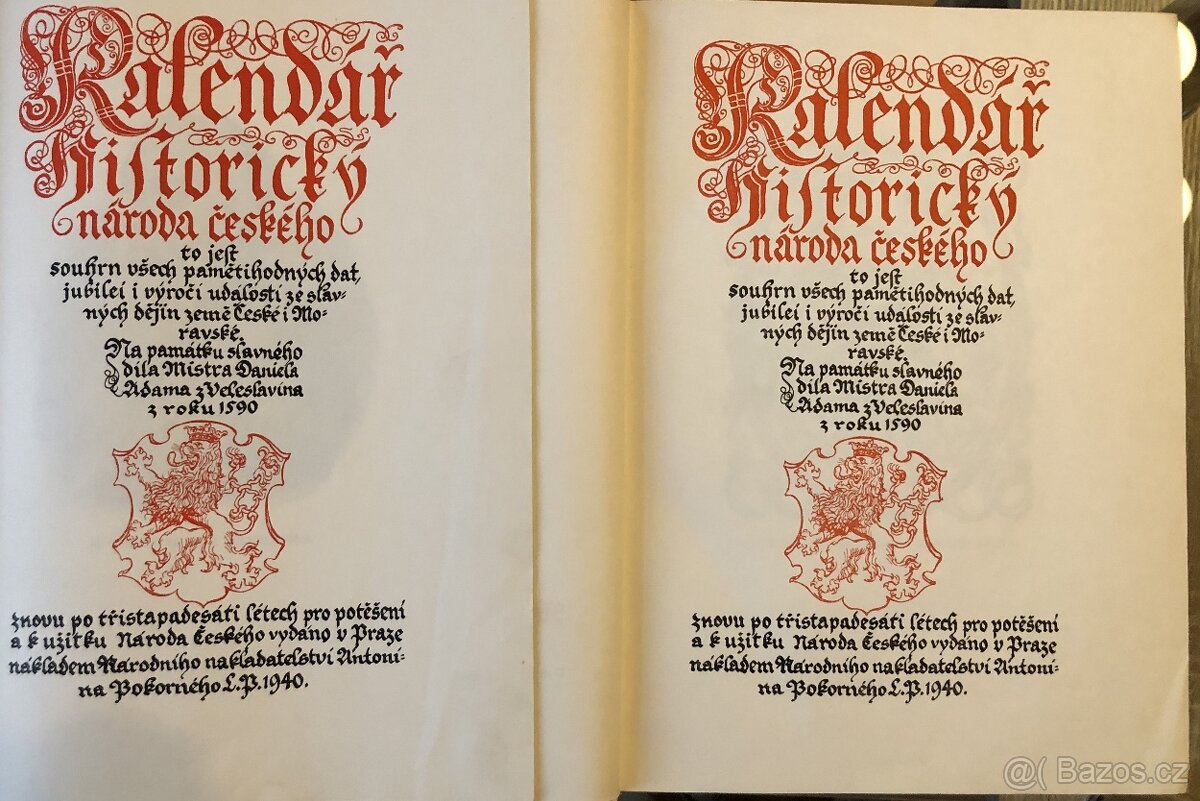 Kalendář
Historický
národa českého
to jest
souhrn všech pamětihodných dat,
jubilei i výročí událostí ze slav-
ných dějin země České i Mo-
ravské.
Na památku slavného
díla Mistra Daniela
Adama z Veleslavína
z roku 1590
znovu po třistapadesáti létech pro potěšení
a k užitku Národa Českého vydáno v Praze
nákladem Národního nakladatelství Antoní-
na Pokorného L.P.1940.
Kalendář
Historický
národa českého
to jest
souhrn všech pamětihodných dat,
jubilei i výročí událostí ze slav-
ných dějin země České i Mo-
ravské.
Na památku slavného
díla Mistra Daniela
Adama z Veleslavína
z roku 1590
znovu po třistapadesáti létech pro potěšení
a k užitku Národa Českého vydáno v Praze
nákladem Národního nakladatelství Antoní-
na Pokorného L.P.1940.
@( Bazos.cz